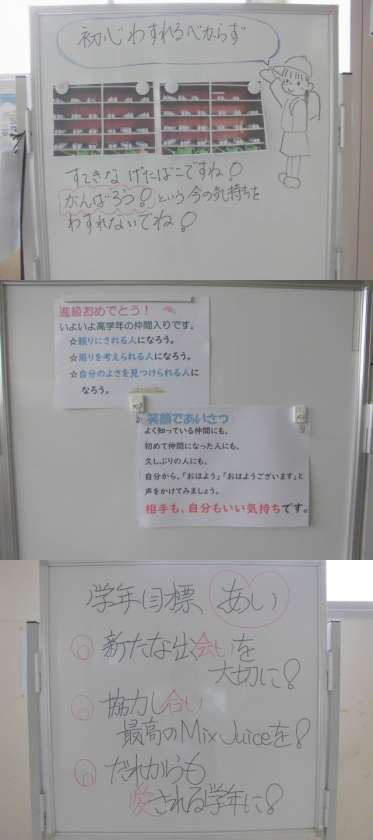 初心わすれるべからず
すてきな げたばこですね!
がんばろう!という今の気持ちを
わすれないでね!
進級おめでとう!
いよいよ高学年の仲間入りです。
☆頼りにされる人になろう。
☆周りを考えられる人になろう。
☆自分のよさを見つけられる人に
なろう。
笑顔であいさつ
よく知っている仲間にも、
初めて仲間になった人にも、
久しぶりの人にも、
自分から、「おはよう」「おはようございます」と
声をかけてみましょう。
相手も、自分もいい気持ちです。
学年目標 あい
◎新たな出会いを
大切に!
◎協力し合い
最高のMix Juiceを!
◎だれからも
愛される学年に!